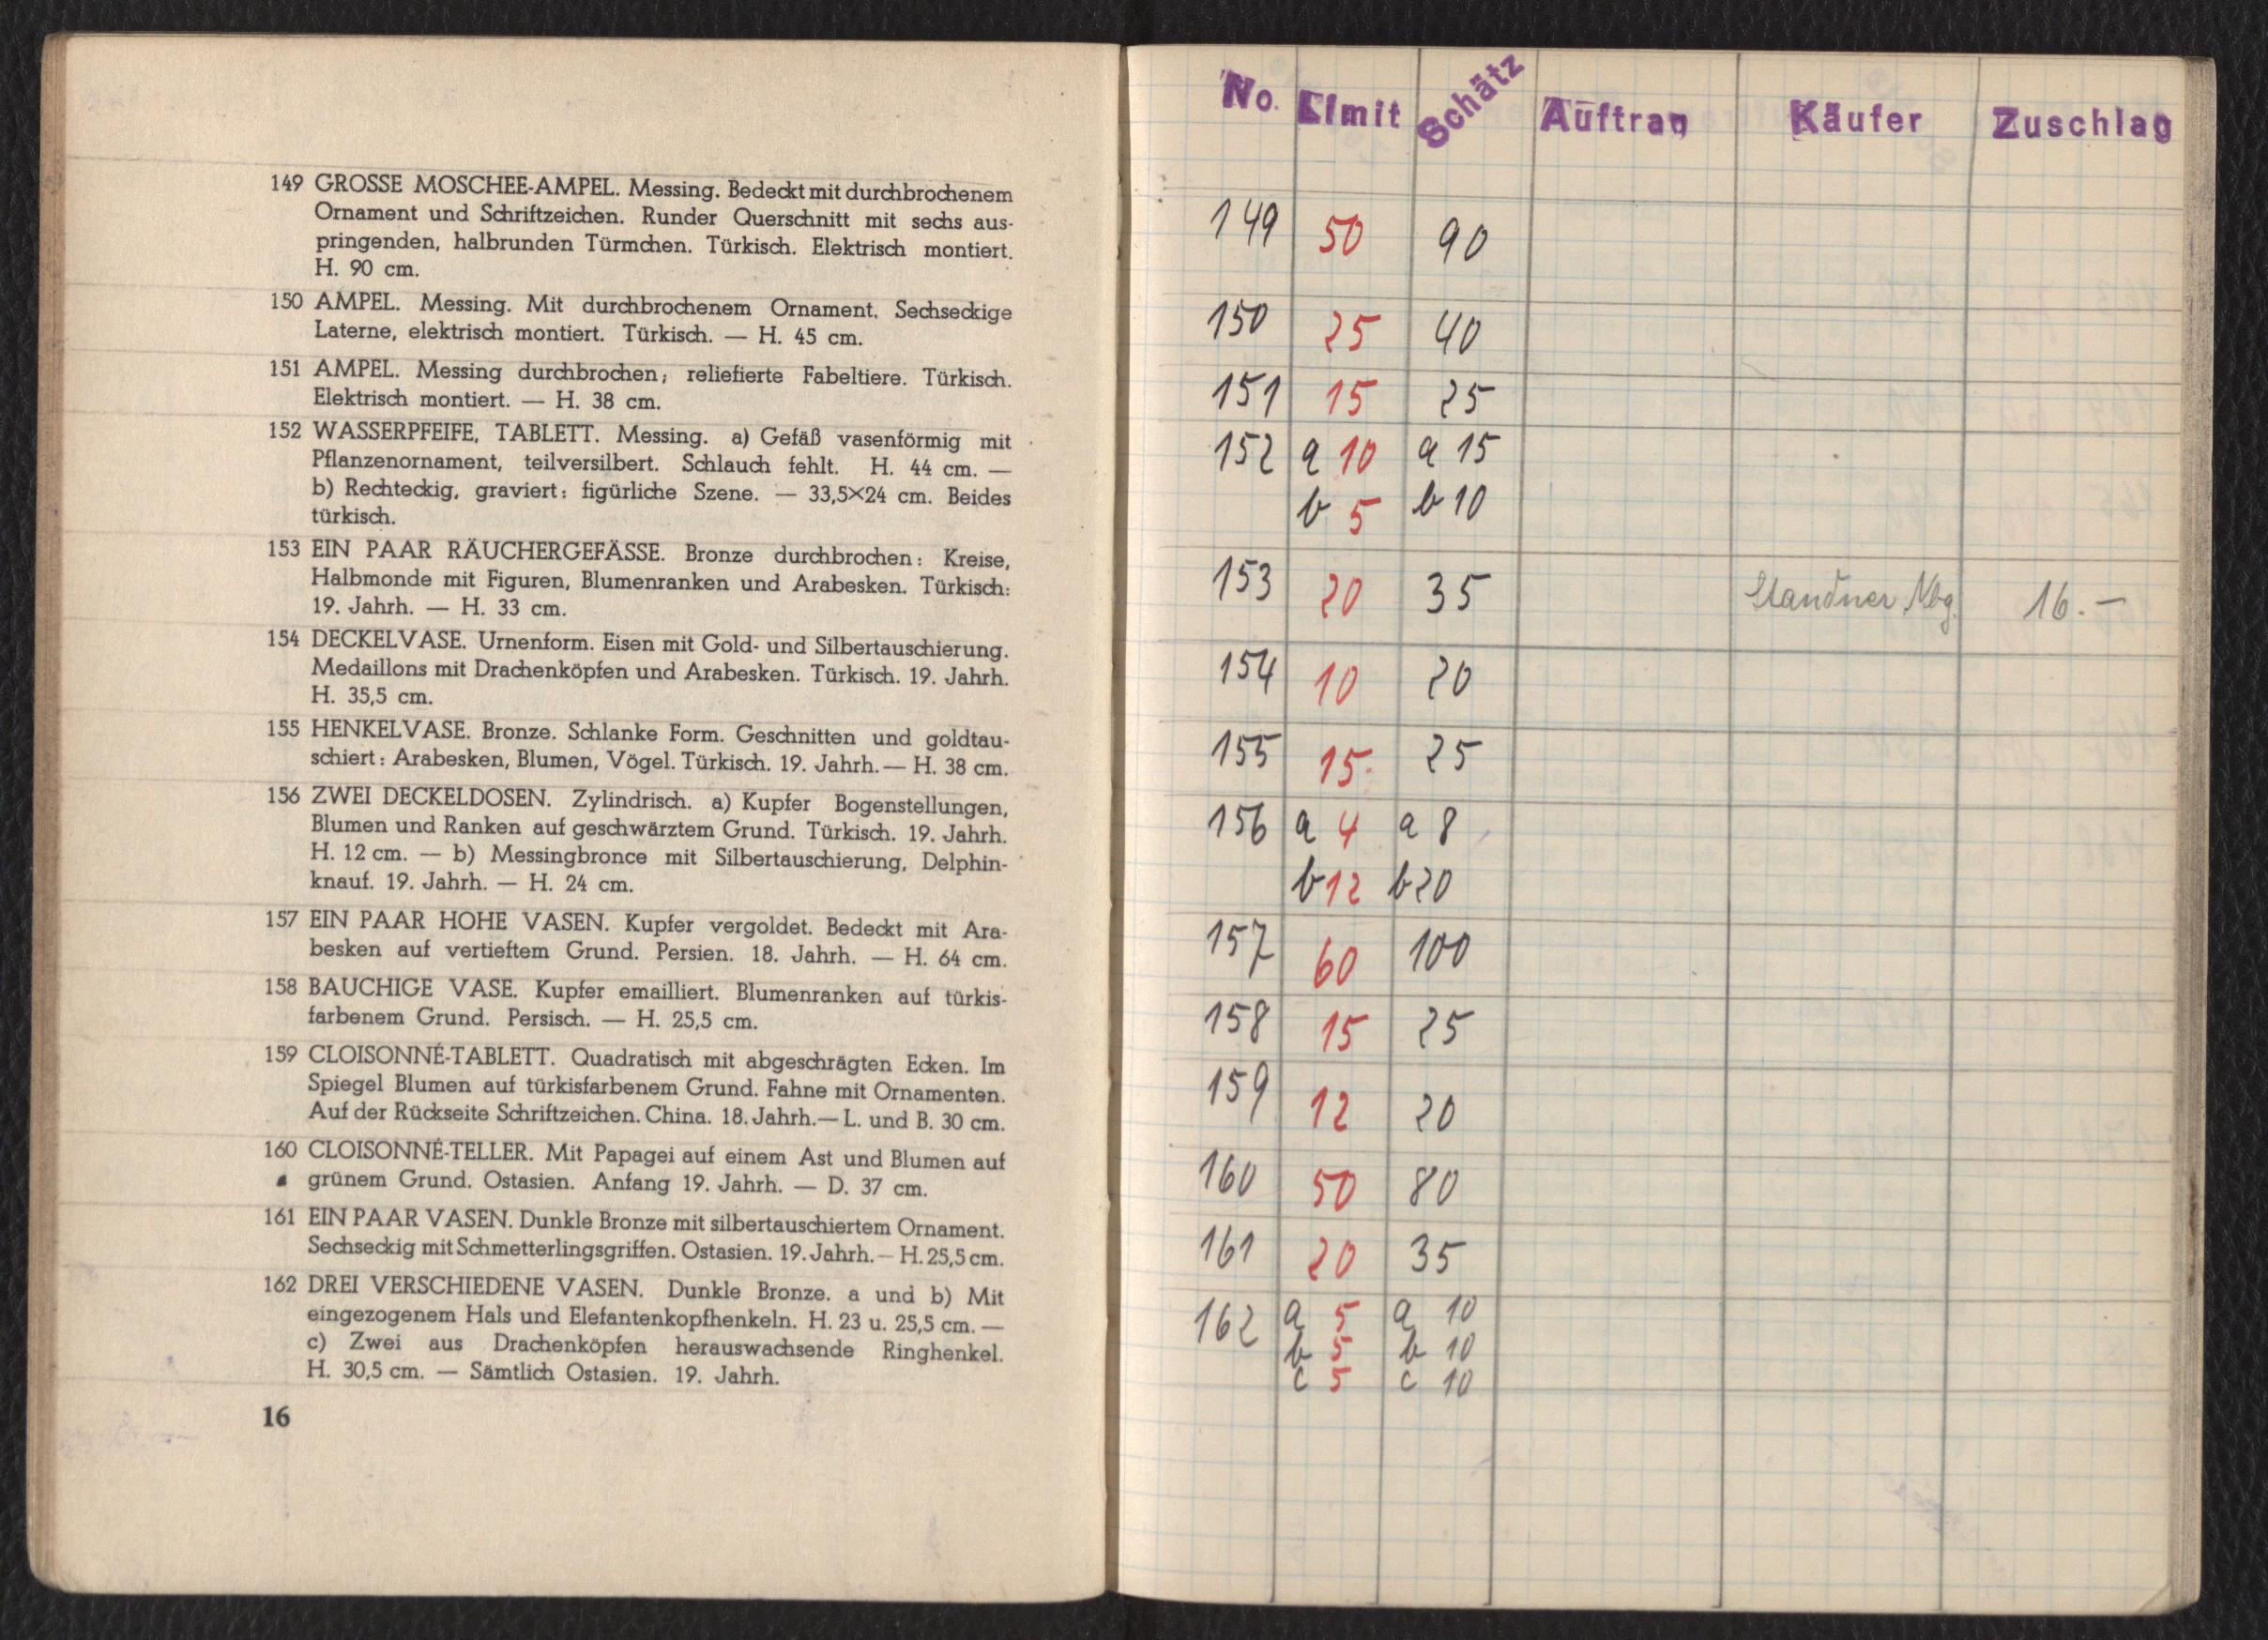 149 GROSSE MOSCHEE-AMPEL. Messing. Bedeckt mit durchbrochenem
Ornament und Schriftzeichen. Runder Querschnitt mit sechs aus-
pringenden, halbrunden Türmchen. Türkisch. Elektrisch montiert.
H. 90 cm.
150 AMPEL. Messing. Mit durchbrochenem Ornament. Sechseckige
Laterne, elektrisch montiert. Türkisch. — H. 45 cm.
151 AMPEL. Messing durchbrochen; reliefierte Fabeltiere. Türkisch.
Elektrisch montiert. — H. 38 cm.
152 WASSERPFEIFE, TABLETT. Messing. a) Gefäß vasenförmig mit
Pflanzenornament, teilversilbert. Schlauch fehlt. H. 44 cm. —
b) Rechteckig, graviert: figürliche Szene. — 33,5×24 cm. Beides
türkisch.
153 EIN PAAR RÄUCHERGEFÄSSE. Bronze durchbrochen: Kreise,
Halbmonde mit Figuren, Blumenranken und Arabesken. Türkisch:
19. Jahrh. — H. 33 cm.
154 DECKELVASE. Urnenform. Eisen mit Gold- und Silbertauschierung.
Medaillons mit Drachenköpfen und Arabesken. Türkisch. 19. Jahrh.
H. 35,5 cm.
155 HENKELVASE. Bronze. Schlanke Form. Geschnitten und goldtau-
schiert: Arabesken, Blumen, Vögel. Türkisch. 19. Jahrh. — H. 38 cm.
156 ZWEI DECKELDOSEN. Zylindrisch. a) Kupfer Bogenstellungen,
Blumen und Ranken auf geschwärztem Grund. Türkisch. 19. Jahrh.
H. 12 cm. — b) Messingbronce mit Silbertauschierung, Delphin-
knauf. 19. Jahrh. — H. 24 cm.
157 EIN PAAR HOHE VASEN. Kupfer vergoldet. Bedeckt mit Ara-
besken auf vertieftem Grund. Persien. 18. Jahrh. — H. 64 cm.
158 BAUCHIGE VASE. Kupfer emailliert. Blumenranken auf türkis-
farbenem Grund. Persisch. — H. 25,5 cm.
159 CLOISONNÉ-TABLETT. Quadratisch mit abgeschrägten Ecken. Im
Spiegel Blumen auf türkisfarbenem Grund. Fahne mit Ornamenten.
Auf der Rückseite Schriftzeichen. China. 18. Jahrh. — L. und B. 30 cm.
160 CLOISONNÉ-TELLER. Mit Papagei auf einem Ast und Blumen auf
grünem Grund. Ostasien. Anfang 19. Jahrh. — D. 37 cm.
161 EIN PAAR VASEN. Dunkle Bronze mit silbertauschiertem Ornament.
Sechseckig mit Schmetterlingsgriffen. Ostasien. 19. Jahrh. — H. 25,5 cm.
162 DREI VERSCHIEDENE VASEN. Dunkle Bronze. a und b) Mit
eingezogenem Hals und Elefantenkopfhenkeln. H. 23 u. 25,5 cm. —
c) Zwei aus Drachenköpfen herauswachsende Ringhenkel.
H. 30,5 cm. — Sämtlich Ostasien. 19. Jahrh.
16
No. Limit Schätz Auftrag Käufer Zuschlag
149 50 90
150 25 40
151 15 25
152 a 10 a 15
b 5 b 10
153 20 35 Nbg. 16.-
154 10 20
155 15. 25
156 a 4 a 8
b 12 b 20
157 60 100
158 15 25
159 12 20
160 50 80
161 20 35
162 a 5 a 10
b 5 b 10
c 5 c 10